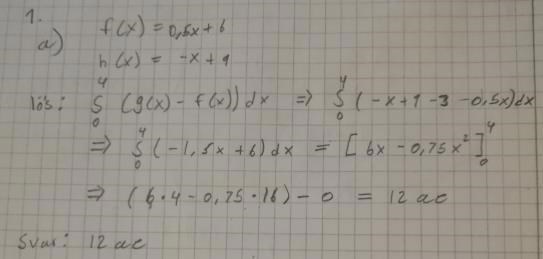 1.
a) f(x) = 0,5x + 6
h(x) = -x + 9
lös: ∫₀⁴ (g(x) - f(x)) dx ⇒ ∫₀⁴ (-x + 9 - 3 - 0,5x) dx
⇒ ∫₀⁴ (-1,5x + 6) dx = [6x - 0,75x²]₀⁴
⇒ (6·4 - 0,75·16) - 0 = 12 ae
Svar: 12 ae